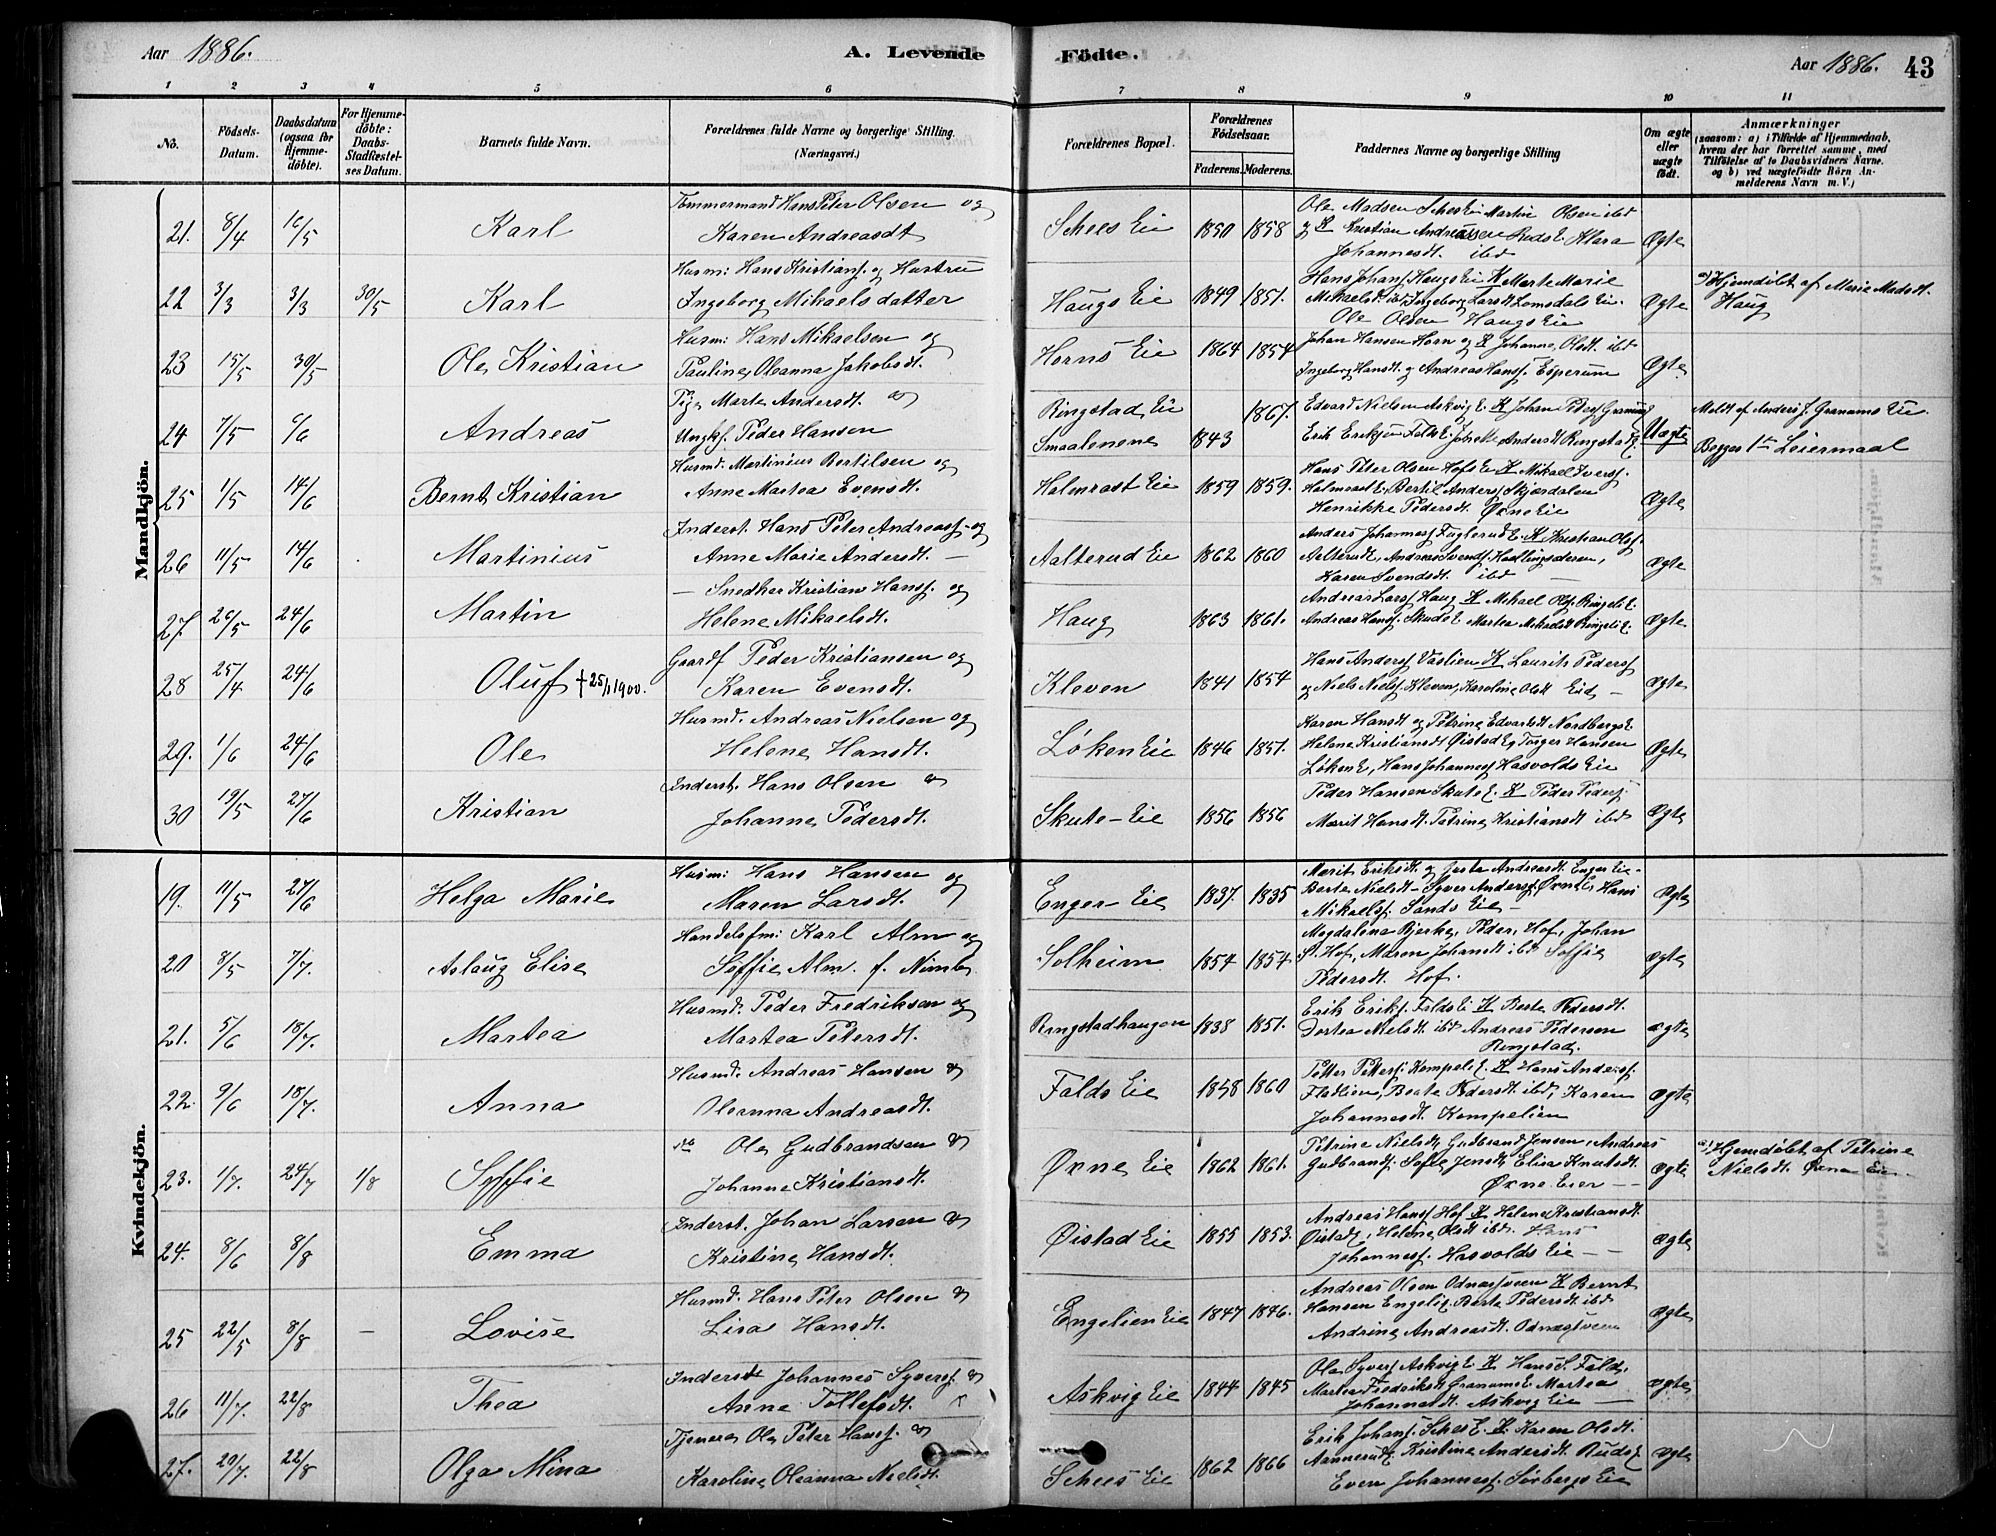 Aar 1886. A. Levende Födte. Aar 1886. 43
1 2 3 4 5 6 7 8 9 10 11
No. Födsels-Datum. Daabsdatum (ogsaa for Hjemmedöbte). For Hjemmedöbte: Daabs-Stadfæstelses Datum. Barnets fulde Navn. Forældrenes fulde Navne og borgerlige Stilling. (Næringsvei.) Forældrenes Bopæl. Forældrenes Födselsaar. Faderens. Moderens. Faddernes Navne og borgerlige Stilling Om ægte eller uægte födt. Anmærkninger (saasom: a) i Tilfælde af Hjemmedaab, hvem der har forrettet samme, med Tilföielse af to Daabsvidners Navne. og b) ved uægtefödte Börn Anmelderens Navn m. V.)
Mandkjön.
Tømmermand Hans Peter Olsen og
21. 8/4 16/5 Karl Karen Andreasdt Schees Eie 1850 1858 Ægte
Ole Madsen Schees Ei Martin Olsen ibd
og K Kristian Andreassen Ruds E. Klara
Johannesdt. ibd
Husm: Hans Kristians. og Hustru
22 3/3 3/3 30/5 Karl Ingeborg Mikaelsdatter Haugs Eie 1849 1851. Ægte
Hans Johans. Haugs Eie K Marte Marie
Mikaelsdt. ibd Ingeborg Larsdt Lomsdals Eie.
Ole Olsen Haugs Eie
a) Hjemdøbt af Marie Madsdt.
Haug
Husm: Hans Mikaelsen og
23 15/5 30/5 Ole Kristian Pauline Oleanna Jakobsdt. Horns Eie 1864 1854 Ægte
Johan Hansen Horn og K Johanne Olsdt. ibd
Ingeborg Hansdt. og Andreas Hans. Esperum
Pige Marte Andersdt. og
24 7/5 6/6 Andreas Ungk. Peder Hansen Ringstad Eie Smaalenene 1843 1867. Uægte
Edvard Nielsen Askvig E. K Johan Peders. Granum
Erik Eriksen Falds E. Johette Andersdt Ringstad E.
Meldt af Anders J. Granums Eie
Begges 1ste Leiermaal
Husmd. Martinius Bertilsen og
25 1/5 14/6 Bernt Kristian Anne Martea Evensdt. Halmrast Eie 1859 1859. Ægte
Hans Peter Olsen Hofs E K Mikael Ivers.
Halmrast E. Bertil Anders. Skjærdalen
Henrikke Pedersdt. Øxne Eie
Inderst. Hans Peter Andreas. og
26 11/5 14/6 Martinius Anne Marie Andersdt. — Aalterud Eie 1862 1860 Ægte
Anders Johannes. Fuglerud E. K Kristian Ols.
Aalterud E, Andreas Svends. Hadlingsderen,
Karen Svendsdt. ibd —
— Snedker Kristian Hans. og
27. 26/5 24/6 Martin Helene Mikaelsdt. Haug 1863 1861. Ægte
Andreas Lars. Haug K Mikael Ols. Ringeli E.
Andreas Hans. Skuds E Martea Mikaelsdt Ringeli E.
Gaardf Peder Kristiansen og
28 25/4 24/6 Oluf + 25/1 1900. Karen Evensdt. Kleven 1841 1854 Ægte
Hans Anders. Vastien K Laurits Peders.
og Niels Niels. Kleven, Karoline Olsdt Eid —
Husmd. Andreas Nielsen og
29. 1/6 24/6 Ole Helene Hansdt. Løken Eie 1846 1851. Ægte
Karen Hansdt og Petrine Edvartsdt Nordbergs E.
Helene Kristiansdt Øistad E, Torger Hansen
Løken E, Hans Johannes. Hasvolds Eie
Inderst. Hans Olsen og
30 19/5 27/6 Kristian Johanne Pedersdt. Skute-Eie 1856 1856 Ægte
Peder Hansen Skute E. K Peder Peders.
Marit Hansdt. Petrine Kristiansdt ibd
Kvindekjön.
Husm: Hans Hansen og
19. 11/5 27/6 Helga Marie Maren Larsdt. Enger-Eie 1837. 1835 Ægte
Marit Eriksdt. og Andreasdt. Enger Eie-
Berte Nielsdt – Syver Anders. Øxne E, Hans
Mikaels. Sands Eie —
Handelsfm: Karl Alm og
20 8/5 7/7. Aslaug Elise Soffie Alm. f. Solheim 1854 1854 Ægte
Magdalena Bjerke, Peder, Hof, Johan
Hof, Maren Johansdt ibd Soffie
Pedersdt. Hof.
Husmd. Peder Fredriksen og
21. 5/6 18/7. Martea Martea Petersdt. Ringstadhaugen 1838 1851. ægte
Erik Eriks. Falds E K Berte Pedersdt.
Dortea Nielsdt. ibd Andreas Pedersen
Ringstad.
Husmd. Andreas Hansen og
22. 9/6 18/7. Anna Oleanna Andreasdt. Falds Eie 1858 1860 ægte
Petter Petters. Kompeli E. K Hans Anders.
Fladlien, Beate Pedersdt ibd, Karen
Johannesdt. Kompelien
do Ole Gudbrandsen og
23. 1/7. 24/7 1/8 Soffie Johanne Kristiansdt. Øxne Eie 1862 1861. ægte
Petrine Nielsdt, Gudbrand Jensen, Andreas
Gudbrands. Sofie Jensdt, Elisa Knutsdt.
Øxne Eier —
a) Hjemdøbt af Petrine
Nielsdt. Øxne Eie
Inderst. Johan Larsen og
24. 8/6 8/8 Emma Kristine Hansdt. Øistad Eie 1855 1853. ægte
Andreas Hans. Hof K Helene Kristiansdt.
Øistad E, Helene Olsdt ibd. Hans
Johannes. Hasvolds Eie —
Husmd. Hans Peter Olsen og
25 22/5 8/8 — Lovise Lisa Hansdt. Engelien Eie 1847 1846. Ægte
Andreas Olsen Odnæsveen K Bernt
Hansen Engeli E. Berte Pedersdt ibd
Andrine Andreasdt. Odnæsveen
Inderst Johannes Syvers. og
26 11/7. 22/8 Thea Anne Tollefsdt. Askvig Eie 1844 1845 ægte
Ole Syvers. Askvig E K Hans S. Fald,
Martea Fredriksdt Granum E Martea
Johannesdt. Askvig Eie —
Tjener Ole Peter Hans. og
27. 20/7. 22/8 Olga Mina Karoline Oleanna Nielsdt. Schees Eie 1862 1866 ægte
Erik Johans. Schees E. K. Karen Olsdt.
Aannerud E. Kristine Andersdt. Ruds E
Even Johannes. Sørbergs Eie